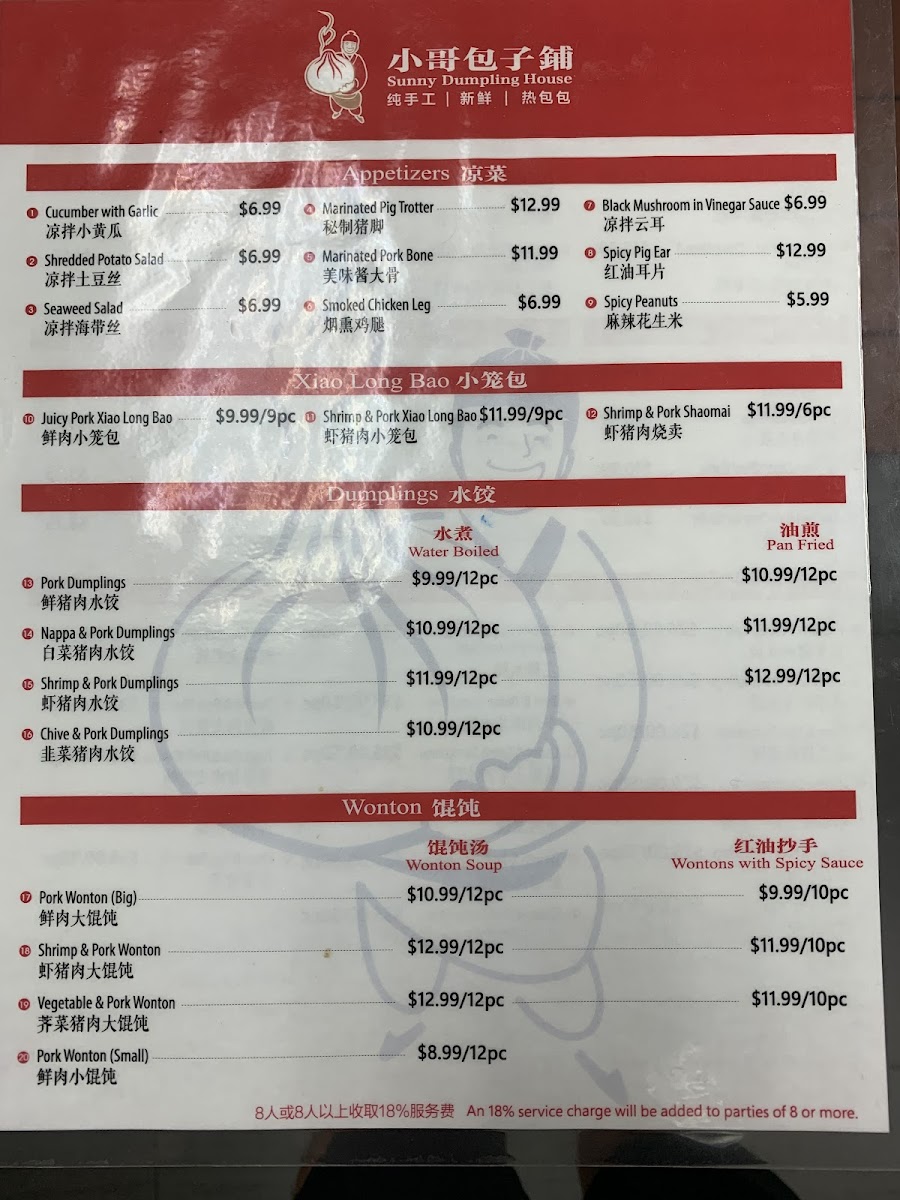 小哥包子鋪
Sunny Dumpling House
纯手工 | 新鲜 | 热包包
Appetizers 凉菜
1 Cucumber with Garlic $6.99
凉拌小黄瓜
2 Shredded Potato Salad $6.99
凉拌土豆丝
3 Seaweed Salad $6.99
凉拌海带丝
4 Marinated Pig Trotter $12.99
秘制猪脚
5 Marinated Pork Bone $11.99
美味酱大骨
6 Smoked Chicken Leg $6.99
烟熏鸡腿
7 Black Mushroom in Vinegar Sauce $6.99
凉拌云耳
8 Spicy Pig Ear $12.99
红油耳片
9 Spicy Peanuts $5.99
麻辣花生米
Xiao Long Bao 小笼包
10 Juicy Pork Xiao Long Bao $9.99/9pc
鲜肉小笼包
11 Shrimp & Pork Xiao Long Bao $11.99/9pc
虾猪肉小笼包
12 Shrimp & Pork Shaomai $11.99/6pc
虾猪肉烧卖
Dumplings 水饺
水煮 油煎
Water Boiled Pan Fried
13 Pork Dumplings $9.99/12pc $10.99/12pc
鲜猪肉水饺
14 Nappa & Pork Dumplings $10.99/12pc $11.99/12pc
白菜猪肉水饺
15 Shrimp & Pork Dumplings $11.99/12pc $12.99/12pc
虾猪肉水饺
16 Chive & Pork Dumplings $10.99/12pc
韭菜猪肉水饺
Wonton 馄饨
馄饨汤 红油抄手
Wonton Soup Wontons with Spicy Sauce
17 Pork Wonton (Big) $10.99/12pc $9.99/10pc
鲜肉大馄饨
18 Shrimp & Pork Wonton $12.99/12pc $11.99/10pc
虾猪肉大馄饨
19 Vegetable & Pork Wonton $12.99/12pc $11.99/10pc
荠菜猪肉大馄饨
20 Pork Wonton (Small) $8.99/12pc
鲜肉小馄饨
8人或8人以上收取18%服务费 An 18% service charge will be added to parties of 8 or more.